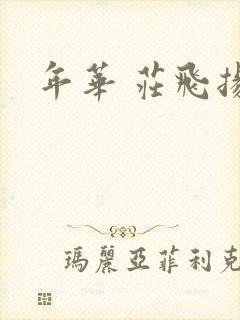 年華 莊飛揚
瑪麗亞菲利克